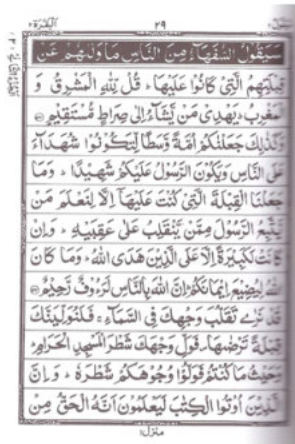 البقرة ٢
٢٩
سَيَقُولُ السُّفَهَآءُ مِنَ النَّاسِ مَا وَلّٰىهُمْ عَنْ
قِبْلَتِهِمُ الَّتِیْ كَانُوْا عَلَیْهَا ؕ قُلْ لِّلّٰهِ الْمَشْرِقُ وَ
الْمَغْرِبُ ؕ یَهْدِیْ مَنْ یَّشَآءُ اِلٰی صِرَاطٍ مُّسْتَقِیْمٍ
وَ كَذٰلِكَ جَعَلْنٰكُمْ اُمَّةً وَّسَطًا لِّتَكُوْنُوْا شُهَدَآءَ
عَلَی النَّاسِ وَ یَكُوْنَ الرَّسُوْلُ عَلَیْكُمْ شَهِیْدًا ؕ وَ مَا
جَعَلْنَا الْقِبْلَةَ الَّتِیْ كُنْتَ عَلَیْهَاۤ اِلَّا لِنَعْلَمَ مَنْ
یَّتَّبِعُ الرَّسُوْلَ مِمَّنْ یَّنْقَلِبُ عَلٰی عَقِبَیْهِ ؕ وَ اِنْ
كَانَتْ لَكَبِیْرَةً اِلَّا عَلَی الَّذِیْنَ هَدَی اللّٰهُ ؕ وَ مَا كَانَ
اللّٰهُ لِیُضِیْعَ اِیْمَانَكُمْ ؕ اِنَّ اللّٰهَ بِالنَّاسِ لَرَءُوْفٌ رَّحِیْمٌ
قَدْ نَرٰی تَقَلُّبَ وَجْهِكَ فِی السَّمَآءِ ۚ فَلَنُوَلِّیَنَّكَ
قِبْلَةً تَرْضٰىهَا ۪ فَوَلِّ وَجْهَكَ شَطْرَ الْمَسْجِدِ الْحَرَامِ ؕ
وَ حَیْثُ مَا كُنْتُمْ فَوَلُّوْا وُجُوْهَكُمْ شَطْرَهٗ ؕ وَ اِنَّ
الَّذِیْنَ اُوْتُوا الْكِتٰبَ لَیَعْلَمُوْنَ اَنَّهُ الْحَقُّ مِنْ
منزل ١